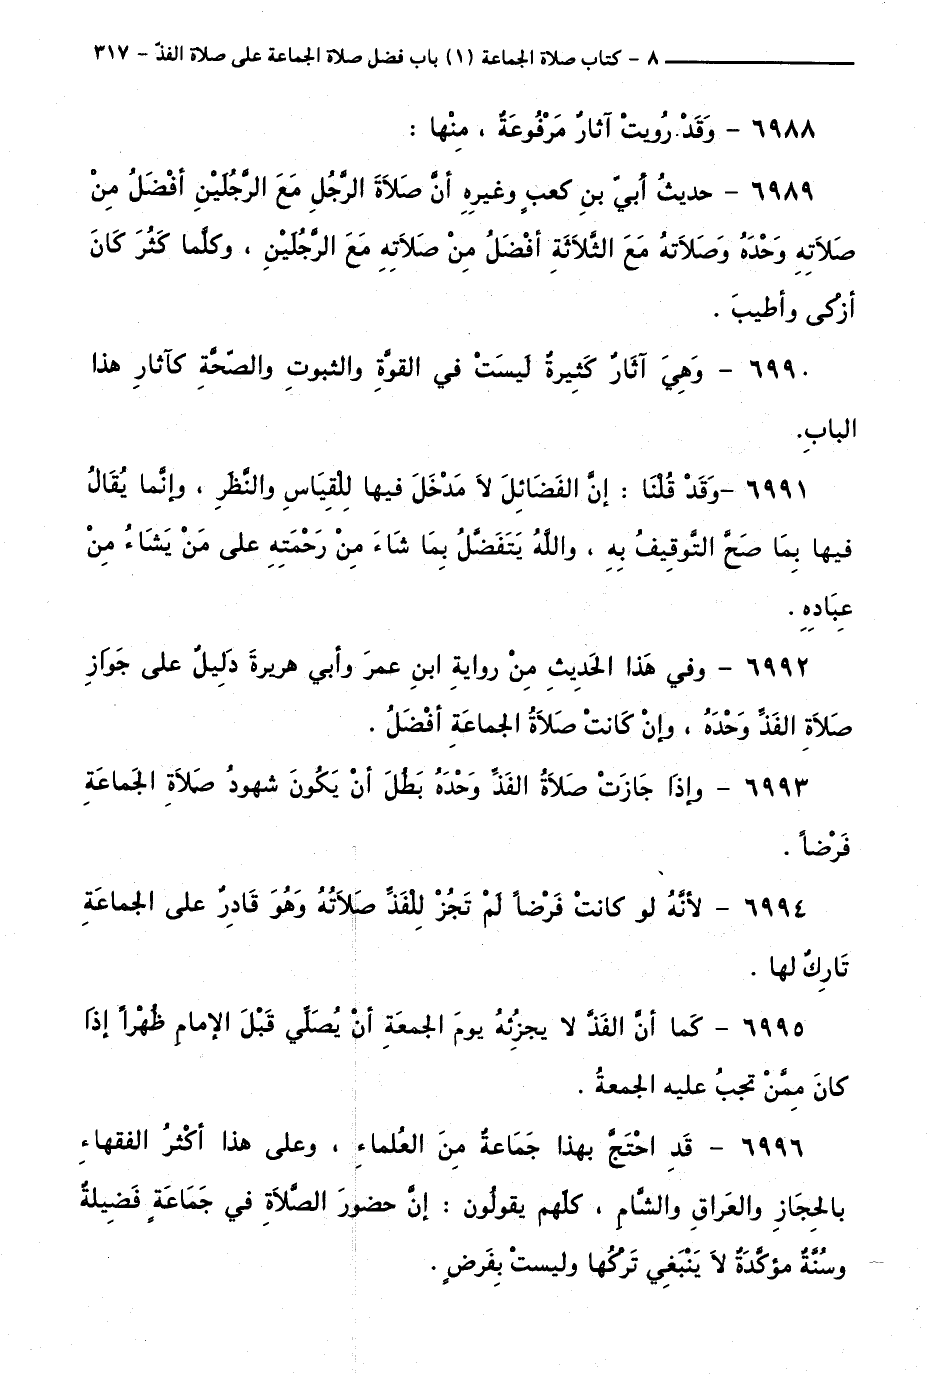 ٨ - كتاب صلاة الجماعة (١) باب فضل صلاة الجماعة على صلاة الفذّ - ٣١٧
٦٩٨٨ - وَقَدْ رُويتْ آثارٌ مَرْفُوعَةٌ ، مِنْها :
٦٩٨٩ - حديثُ أُبيّ بنِ كعبٍ وغيرِهِ أنَّ صَلاَةَ الرَّجُلِ مَعَ الرَّجُلَيْنِ أفْضَلُ مِنْ
صَلاَتِهِ وَحْدَهُ وَصَلاَتهُ مَعَ الثَّلاثَةِ أفْضَلُ مِنْ صَلاتِهِ مَعَ الرَّجُلَيْنِ ، وكلَّما كَثُرَ كَانَ
أزكْى وأطيبَ .
٦٩٩٠ - وَهِيَ آثَارٌ كَثِيرَةٌ لَيسَتْ في القوَّةِ والثبوتِ والصّحَّةِ كآثارِ هذا
البابِ.
٦٩٩١ -وَقَدْ قُلْنَا : إنَّ الفَضَائلَ لاَ مَدْخَلَ فيها لِلْقِيَاسِ والنَّظَرِ ، وإنَّما يُقَالُ
فيها بِمَا صَحَّ التَّوقيفُ بِهِ ، واللَّهُ يَتَفَضَّلُ بِمَا شَاءَ مِنْ رَحْمَتِهِ على مَنْ يَشَاءُ مِنْ
عِبَادِهِ .
٦٩٩٢ - وفي هَذا الحَديثِ مِنْ روايةِ ابنِ عمرَ وأبي هريرةَ دَلِيلٌ على جَوَازِ
صَلاَةِ الفَذِّ وَحْدَهُ ، وإنْ كَانتْ صَلاَةُ الجماعَةِ أفْضَلُ .
٦٩٩٣ - وإذَا جَازَتْ صَلاَةُ الفَذِّ وَحْدَهُ بَطُلَ أنْ يَكُونَ شهودُ صَلاَةِ الجَماعَةِ
فَرْضاً .
٦٩٩٤ - لأنَّهُ لو كانتْ فَرْضاً لَمْ تَجُزْ لِلْفَذِّ صَلاَتُهُ وَهُوَ قَادِرٌ على الجماعَةِ
تَارِكٌ لها .
٦٩٩٥ - كَما أنَّ الفَذَّ لا يجزئهُ يومَ الجمعَةِ أنْ يُصَلِّي قَبْلَ الإمامِ ظُهْراً إذَا
كانَ مِمَّنْ تجبُ عليه الجمعةُ .
٦٩٩٦ - قَدِ احْتَجَّ بهذا جَمَاعةٌ مِنَ العُلماءِ ، وعلى هذا أكْثرُ الفقهاءِ
بالحِجَازِ والعَراقِ والشَّامِ ، كلّهم يقولُون : إنَّ حضورَ الصَّلاَةِ في جَمَاعَةٍ فَضِيلةٌ
وسُنَّةٌ مؤكَّدَةٌ لاَ يَنْبَغِي تَرْكُها وليستْ بِفَرضٍ .